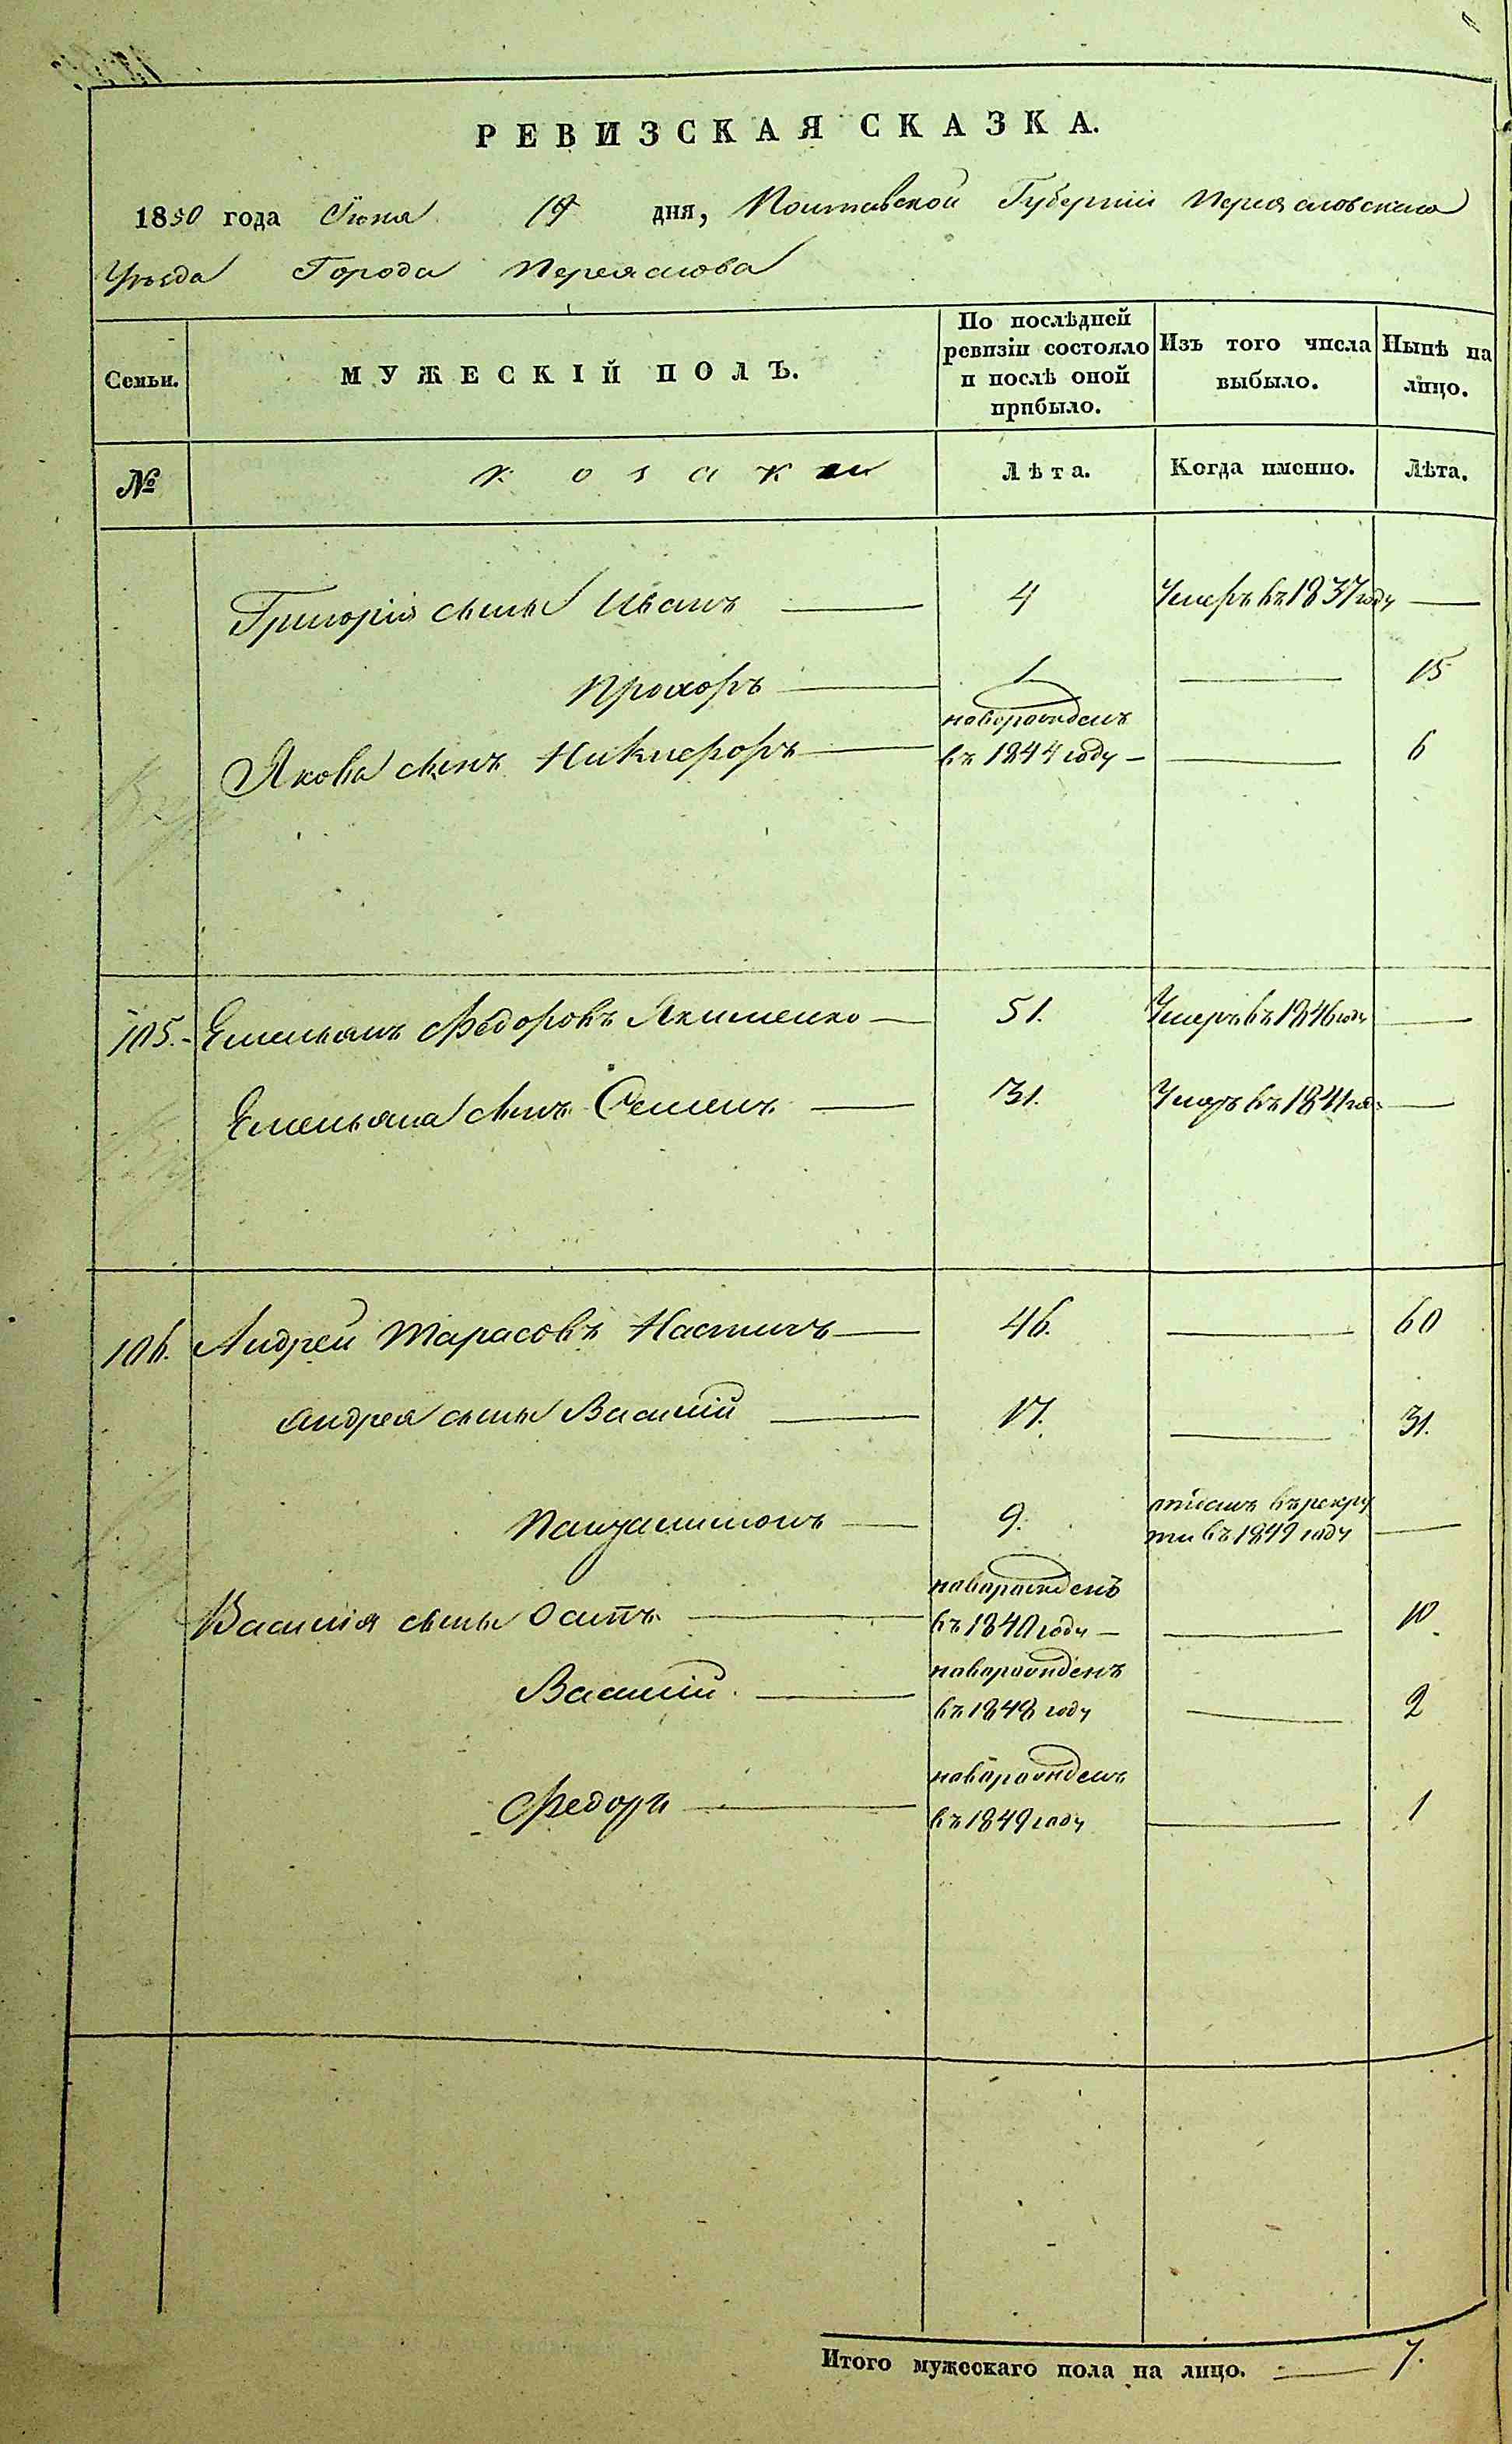 РЕВИЗСКАЯ СКАЗКА.
1850 года Іюня 19 дня, Полтавской Губерніи Переяславскаго
Уѣзда Города Переяслова
Семьи. МУЖЕСКІЙ ПОЛЪ. По послѣдней ревизіи состояло и послѣ оной прибыло. Изъ того числа выбыло. Нынѣ на лицо.
№ козаки Лѣта. Когда именно. Лѣта.
Григорія сыны Иванъ — 4 Умеръ въ 1837 году —
Прохоръ — 1 — 15
Якова сынъ Никифоръ — новорожденъ въ 1844 году — — 6
105. Емельянъ Федоровъ Якименко — 51. Умеръ въ 1846 году —
Емельяна сынъ Семенъ — 31. Умеръ въ 1841 го: —
106. Андрей Тарасовъ Настичъ — 46. — 60
Андрея сыны Василій — 17. — 31.
Панталимонъ — 9. отданъ въ рекруты въ 1849 году —
Василія сыны Осипъ — новорожденъ въ 1840 году — — 10
Василій — новорожденъ въ 1848 году — 2
Федоръ — новорожденъ въ 1849 году — 1
Итого мужескаго пола на лицо. — 7.